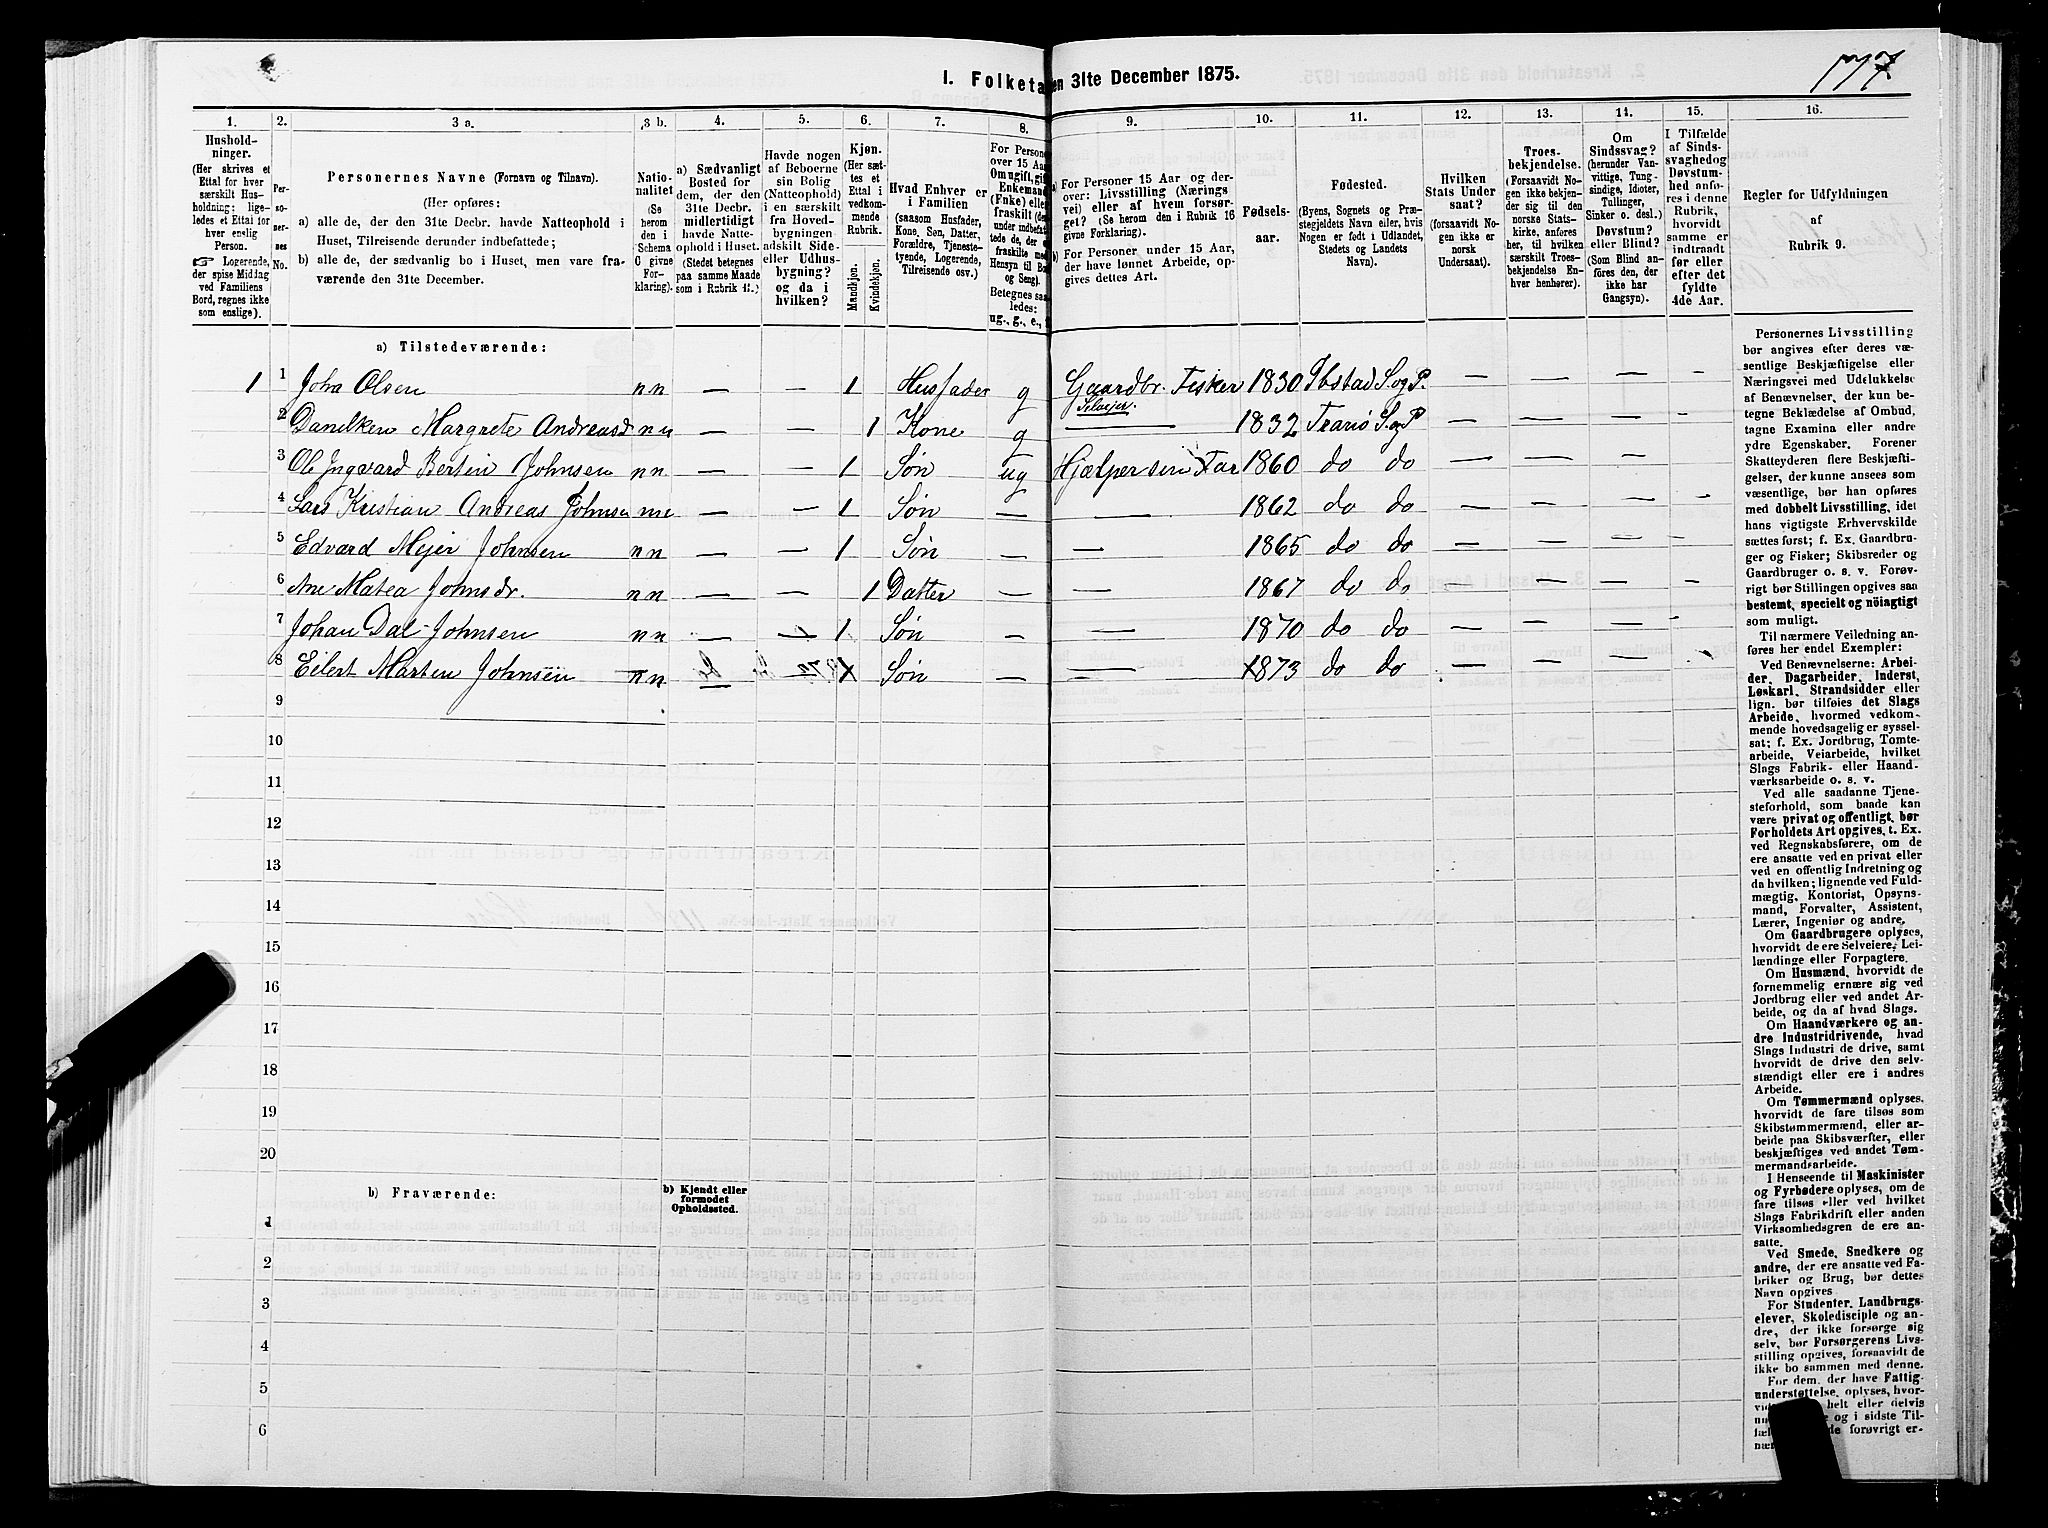 177
I. Folketa en 31te December 1875.
1. 2. 3 a. 3 b. 4. 5. 6. 7. 8. 9. 10. 11. 12. 13. 14. 15. 16.
Husholdninger.
(Her skrives et
Ettal for hver
særskilt Husholdning;
ligeledes
et Ettal for
hver enslig
Person.
☞ Logerende,
der spise Middag
ved Familiens
Bord, regnes ikke
som enslige).
Personernes
No.
Personernes Navne (Fornavn og Tilnavn).
(Her opføres:
a) alle de, der den 31te Decbr. havde Natteophold i
Huset, Tilreisende derunder indbefattede;
b) alle de, der sædvanlig bo i Huset, men vare fraværende
den 31te December.
Nationalitet
(Se
herom
den i
Schema
C givne
Forklaring).
a) Sædvanligt
Bosted for
dem, der den
31te Decbr.
midlertidigt
havde Natteophold
i Huset.
(Stedet betegnes
paa samme Maade
som i Rubrik 11.)
Havde nogen
af Beboerne
sin Bolig
(Natteophold)
i en særskilt
fra Hovedbygningen
adskilt Side-
eller Udhusbygning?
og da i
hvilken?
Kjøn.
(Her sættes
et
Ettal i
vedkommende
Rubrik.
Mandkjøn.
Kvindekjøn.
Hvad Enhver er
i Familien
(saasom Husfader,
Kone, Søn, Datter,
Forældre, Tjenestetyende,
Logerende,
Tilreisende osv.)
For Personer
over 15 Aar
Om ugift, gift
Enkemand
(Enke) eller
fraskilt
Betegnes saaledes:
ug., g., e.,
a) For Personer 15 Aar og derover:
Livsstilling (Næringsvei)
eller af hvem forsørget?
(Se herom den i Rubrik 16
givne Forklaring).
b) For Personer under 15 Aar,
der have lønnet Arbeide, opgives
dettes Art.
Fødselsaar.
Fødested.
(Byens, Sognets og Præstegjeldets
Navn eller, hvis
Nogen er født i Udlandet,
Stedets og Landets
Navn).
Hvilken
Stats Undersaat?
(forsaavidt Nogen
ikke er
norsk
Undersaat).
Troesbekjendelse.
(Forsaavidt Nogen
ikke bekjender
sig til den
norske Statskirke,
anføres
her, til hvilken
særskilt Troesbekjendelse
Enhver
henhører).
Om
Sindssvag?
(herunder Vanvittige,
Tungsindige,
Idioter,
Tullinger,
Sinker o. desl.)
Døvstum?
eller Blind?
(Som Blind anføres
den, der
ikke har
Gangsyn).
I Tilfælde
af Sindssvaghed
og
Døvstumhed
anføres
i denne
Rubrik,
hvorvidt
samme er
indtraadt
før eller
efter det
fyldte
4de Aar.
Regler for Udfyldningen
af
Rubrik 9.
a) Tilstedeværende:
1 1 John Olsen nn — — 1 Husfader g Gaardbr. Fisker Selvejer. 1830 Ibstad S. og P. — — — —
2 Danilken Margrete Andreasd nn — — 1 Kone g — 1832 Tranø S. og P — — — —
3 Ole Ingvard Bertin Johnsen nn — — 1 Søn ug Hjælper sin Far 1860 do do — — — —
4 Lars Kristian Andreas Johnsen nn — — 1 Søn — — 1862 do do — — — —
5 Edvard Mejer Johnsen nn — — 1 Søn — — 1865 do do — — — —
6 Ane Matea Johnsdr. nn — — 1 Datter — — 1867 do do — — — —
7 Johan Dal Johnsen nn — — 1 Søn — — 1870 do do — — — —
8 Eilert Marten Johnsen nn — — 1 Søn — — 1873 do do — — — —
9
10
11
12
13
14
15
16
17
18
19
20
b) Fraværende:
b) Kjendt eller
formodet
Opholdssted.
1
2
3
4
5
6
Personernes Livsstilling
bør angives efter deres væsentlige
Beskjæftigelse eller
Næringsvei med Udelukkelse
af Benævnelser, der kun betegne
Beklædelse af Ombud,
tagne Examina eller andre
ydre Egenskaber. Forener
Skatteyderen flere Beskjæftigelser,
der kunne ansees som
væsentlige, bør han opføres
med dobbelt Livsstilling, idet
hans vigtigste Erhvervskilde
sættes først; f. Ex. Gaardbruger
og Fisker; Skibsreder og
Gaardbruger o. s. v. Forøvrigt
bør Stillingen opgives saa
bestemt, specielt og nöiagtigt
som muligt.
Til nærmere Veiledning anføres
her endel Exempler:
Ved Benævnelserne: Arbeider,
Dagarbeider, Inderst,
Løskarl, Strandsidder eller
lign. bør tilføies det Slags
Arbeide, hvormed vedkommende
hovedsagelig er sysselsat;
f. Ex. Jordbrug, Tomtearbeide,
Veiarbeide, hvilket
Slags Fabrik- eller Haandværksarbeide
o. s. v.
Ved alle saadanne Tjenesteforhold,
som baade kan
være privat og offentligt, bør
Forholdets Art opgives, t. Ex.
ved Regnskabsførere, om de
ere ansatte ved en privat eller
ved en offentlig Indretning og
da hvilken; lignende ved Fuldmægtig,
Kontorist, Opsynsmand,
Forvalter, Assistent,
Lærer, Ingeniør og andre.
Om Gaardbrugere oplyses,
hvorvidt de ere Selveiere, Leilændinge
eller Forpagtere.
Om Husmænd, hvorvidt de
fornemmelig ernære sig ved
Jordbrug eller ved andet Arbeide,
og da af hvad Slags.
Om Haandværkere og andre
Industridrivende, hvad
Slags Industri de drive, samt
hvorvidt de drive den selvstændigt
eller ere i andres
Arbeide.
Om Tømmermænd oplyses,
hvorvidt de fare tilsøs som
Skibstømmermænd, eller arbeide
paa Skibsværfter, eller
beskjæftiges ved andet Tømmermandsarbeide.
I Henseende til Maskinister
og Fyrbødere oplyses, om de
fare tilsøs eller ved hvilket
Slags Fabrikdrift eller anden
Virksomhedsgren de ere ansatte.
Ved Smede, Snedkere og
andre, der ere ansatte ved Fabriker
og Brug, bør dettes
Navn opgives.
For Studenter, Landbrugselever,
Skoledisciple og andre,
der ikke forsørge sig
selv, bør Forsørgerens Livsstilling
opgives, forsaavidt de
ikke bo sammen med denne.
For dem, der have Fattigunderstøttelse,
oplyses,
helt eller delvis
og i sidste
forøvrigt